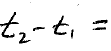 t₂-t₁ =